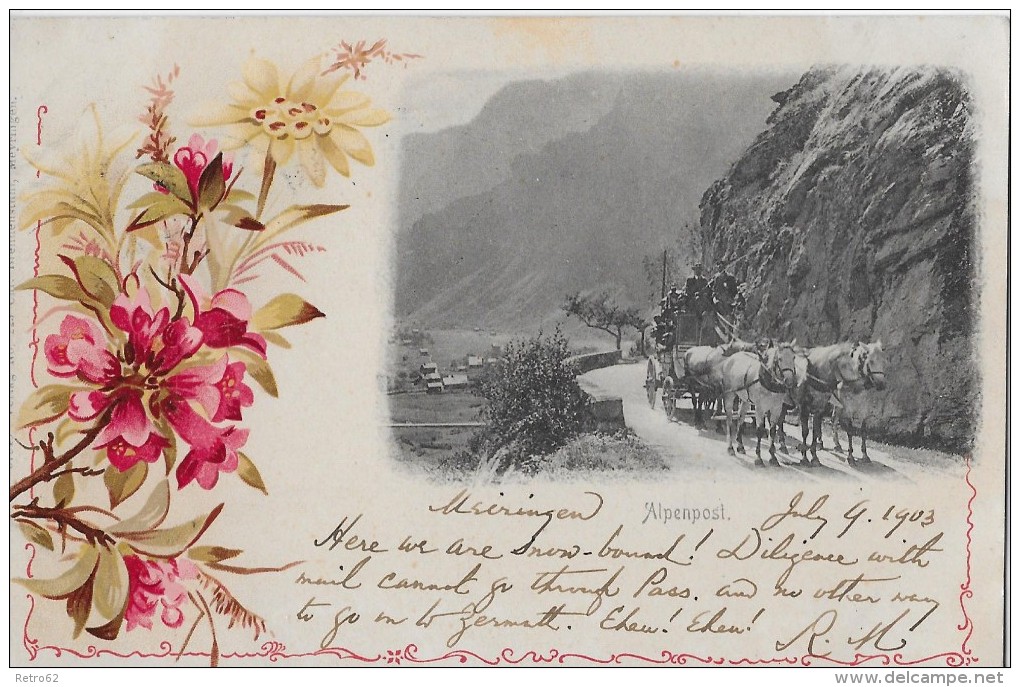 Meiringen Alpenpost. July 9. 1903
Here we are snow-bound! Diligence with
mail cannot go through Pass. and no other way
to go on to Zermatt. Eheu! Eheu!
R. M
Retro62
© www.delcampe.net